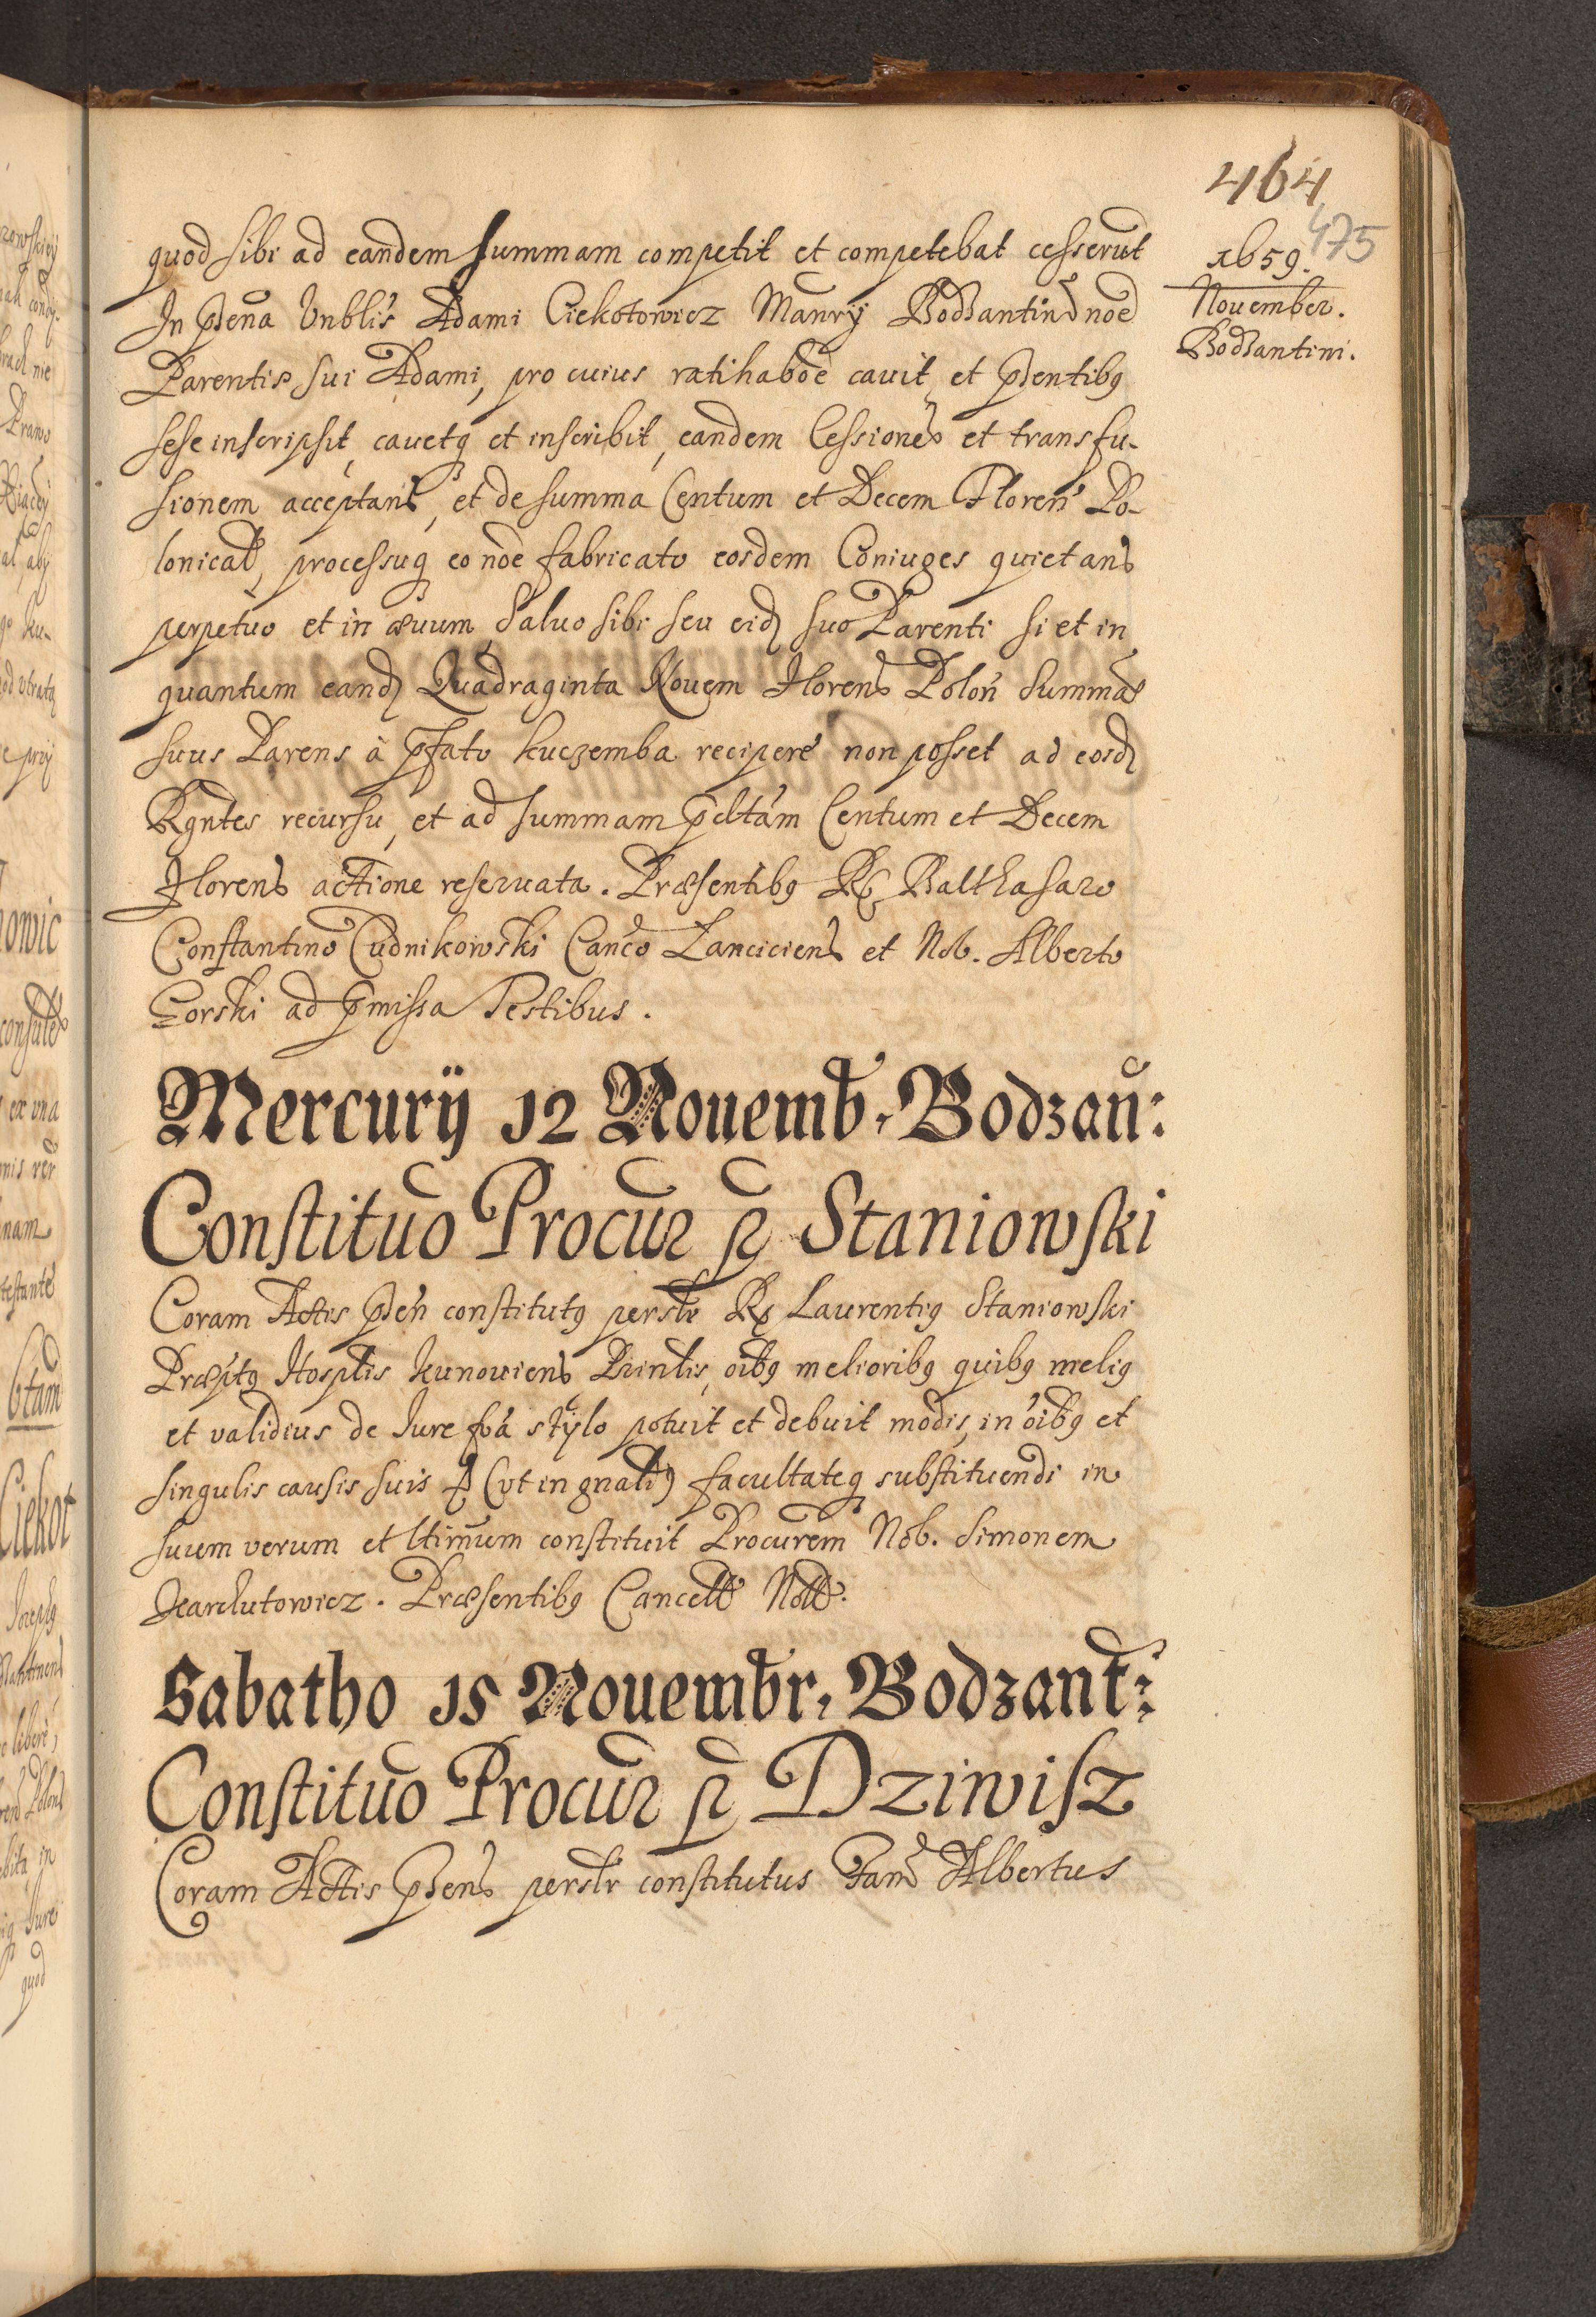 464
475
1659.
Nouember.
Bodzantini.
quod sibi ad eandem summam competit et competebat cesserut
In pñena Vnblis Adami Ciekotowicz Manrÿ Bodzantin noe
Parentis sui Adami, pro cuius ratihaboe cauit et pñentibq
sese inscripsit, cauetq et inscribit, eandem Cessione et transfu-
sionem acceptans, et de summa Centum et Decem Floren Po-
lonical, processuq eo noe fabricato eosdem Coniuges quietans
perpetuo et in æuum, Saluo sibi seu eid suo Parenti si et in
quantum eand Quadraginta Nouem Florens Polon Summa
suus Parens à pfato Kuczemba recipere non posset ad eosd
Rgntes recursu, et ad summam pdtam Centum et Decem
Florens actione reseruata. Præsentibq R Balthasaro
Constantino Cudnikowski Canco Lanciciens et Nob. Alberto
Gorski ad pmissa Testibus.
Mercurÿ 12 Nouemb, Bodzan:
Constituo Procur p Staniowski
Coram Actis pñen constitutq persler R Laurentiq Staniowski
Præptq Hosptis Kunouiens Printis, oibq melioribq quibq meliq
et validius de Iure foa stÿlo potuit et debuit modis, in oibq et
singulis causis suis (vt in gnali) facultateq substituendi in
suum verum et ltimum constituit Procurem Nob. Simonem
Karchutowicz. Præsentibq Cancell Nott.
Sabatho 15 Nouembr, Bodzant:
Constituo Procur p Dziwisz
Coram Actis pñens persler constitutus Fam Albertus